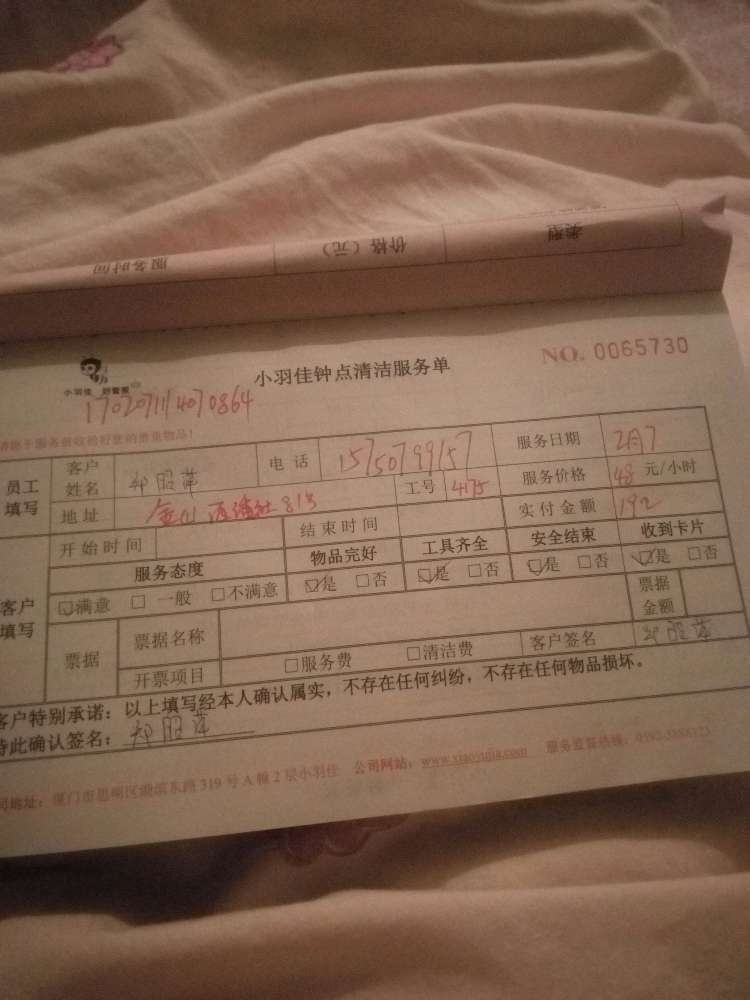 类型
价格（元）
服务时间
小羽佳
小羽佳钟点清洁服务单
NO. 0065730
17020711407​0864
员工填写
客户姓名
电话
15750799157
服务日期
2月7
地址
815
工号
4175
服务价格
48 元/小时
客户填写
开始时间
结束时间
实付金额
192
服务态度
物品完好
工具齐全
安全结束
收到卡片
☑满意 □一般 □不满意
☑是 □否
☑是 □否
☑是 □否
☑是 □否
票据
票据名称
票据金额
开票项目
□服务费 □清洁费
客户签名
客户特别承诺：以上填写经本人确认属实，不存在任何纠纷，不存在任何物品损坏。
特此确认签名：
司地址：厦门市思明区湖滨东路319号A幢2层小羽佳 公司网站：www.xiaoyujia.com 服务监督热线：